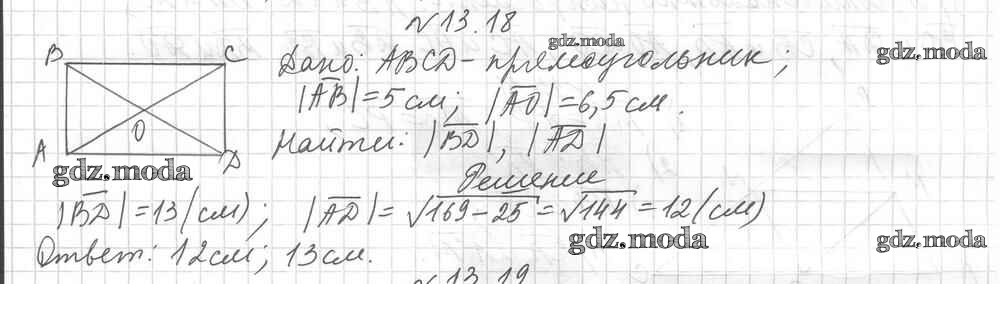 №13.18
gdz.moda
gdz.moda
B C
Дано: ABCD - прямоугольник;
|AB| = 5 см; |AO| = 6,5 см.
O
A D
Найти: |BD|, |AD|
gdz.moda
Решение
|BD| = 13 (см); |AD| = √169-25 = √144 = 12 (см)
gdz.moda
gdz.moda
Ответ: 12 см; 13 см.
№13.19